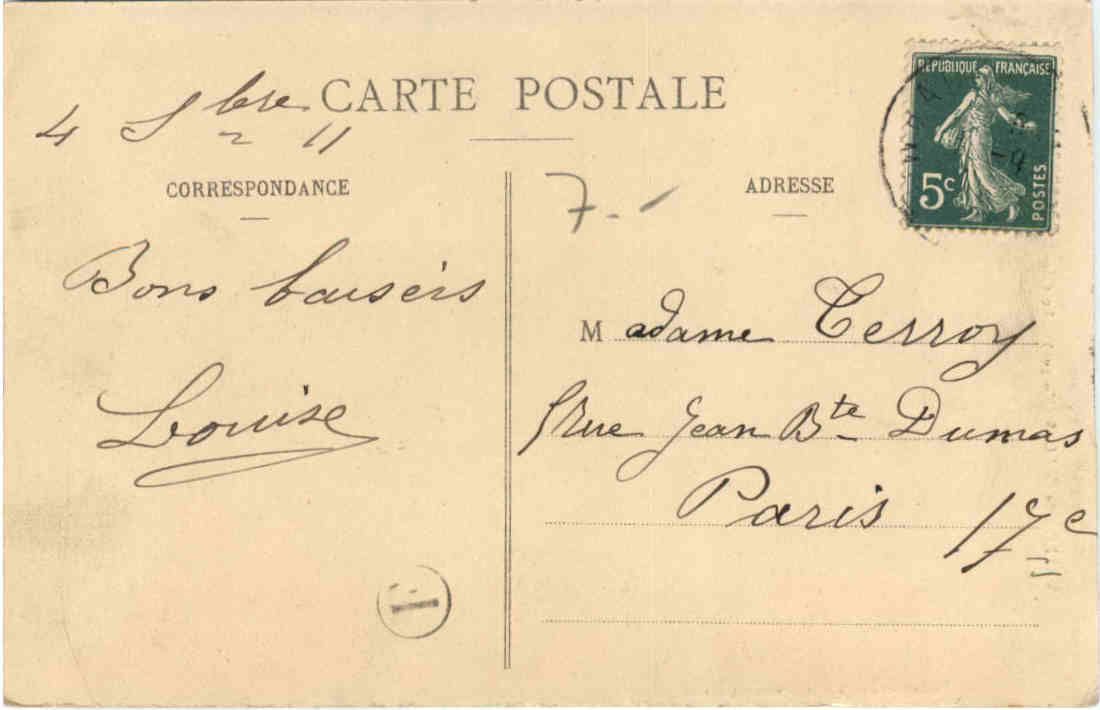 CARTE POSTALE
4 Sbre 11
CORRESPONDANCE
Bons baisers
Louise
7.-
ADRESSE
RÉPUBLIQUE FRANÇAISE
5c
POSTES
Madame Terroy
rue Jean Bte Dumas
Paris 17e